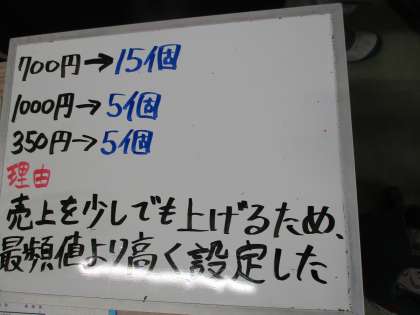 700円→15個
1000円→5個
350円→5個
理由
売上を少しでも上げるため、
最頻値より高く設定した